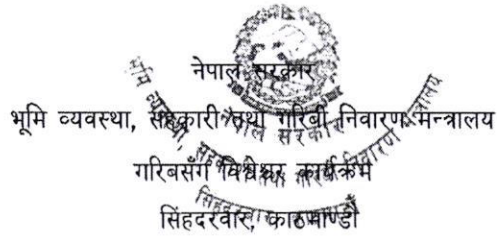 नेपाल सरकार
भूमि व्यवस्था, सहकारी तथा गरिबी निवारण मन्त्रालय
गरिबसँग विश्वेश्वर कार्यक्रम
सिंहदरबार, काठमाण्डौं